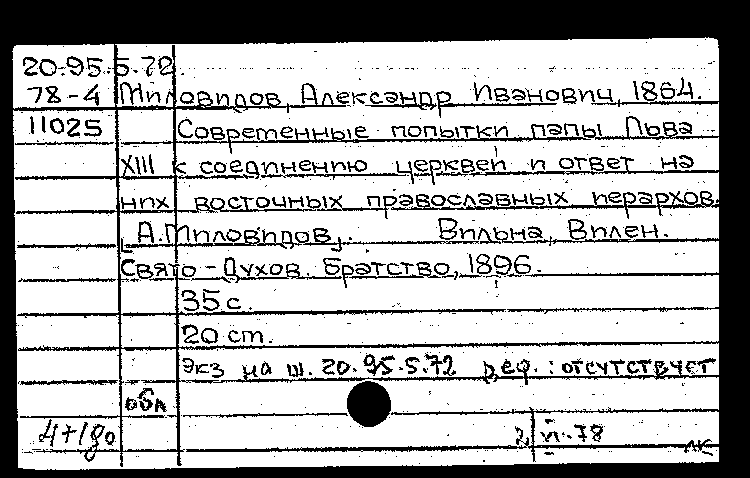 20.95.5.72
78-4 Миловидов, Александр Иванович, 1864.
11025 Современные попытки папы Льва
XIII к соединению церквей и ответ на
них восточных православных иерархов.
[А. Миловидов]. Вильна, Вилен.
Свято-Духов. братство, 1896.
35 с.
20 ст.
Экз на ш. 20.95.5.72 деф.: отсутствует
обл
4+1до 2/VI-78